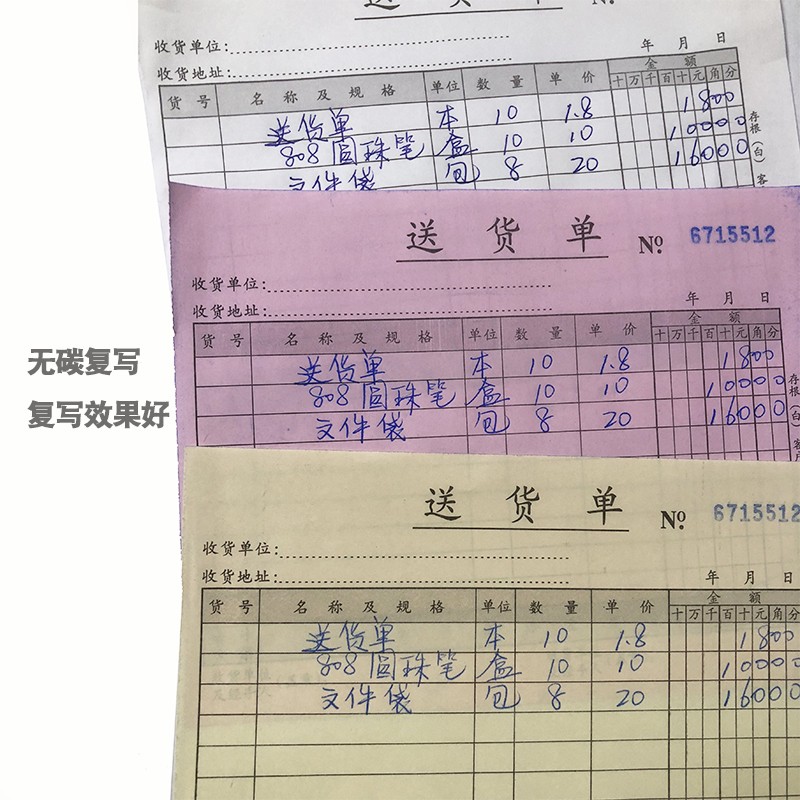 送货单 No.
收货单位:
收货地址: 年 月 日
货号 名称及规格 单位 数量 单价 金额
十万千百十元角分
送货单 本 10 1.8 1800
808圆珠笔 盒 10 10 10000
文件袋 包 8 20 16000
存根(白) 客
送货单 No. 6715512
收货单位:
收货地址: 年 月 日
货号 名称及规格 单位 数量 单价 金额
十万千百十元角分
无碳复写
送货单 本 10 1.8 1800
808圆珠笔 盒 10 10 10000
复写效果好
文件袋 包 8 20 16000
存根(白) 客户
送货单 No. 6715512
收货单位:
收货地址: 年 月 日
货号 名称及规格 单位 数量 单价 金额
十万千百十元角分
送货单 本 10 1.8 1800
808圆珠笔 盒 10 10 10000
文件袋 包 8 20 16000